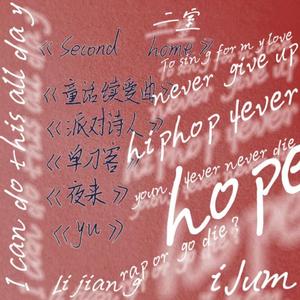 二堂
I can do this all day
《Second home》
To sing for my love
never give up
《童话续爱曲》
《派对诗人》
hiphop 4ever
《单刀客》
young 4ever never die
《夜来》
hope
《yu》
rap or go die?
Li jiang
iJum